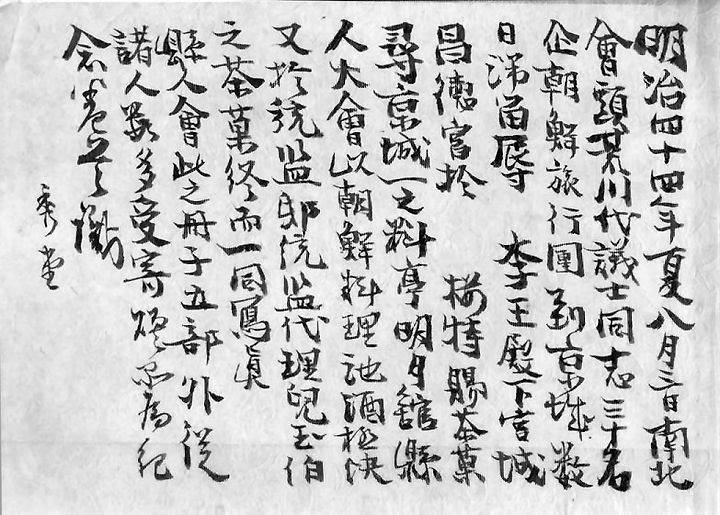 明治四十四年夏八月三日南北
會頭荒川代議士同志三十名
企朝鮮旅行團到京城数
日滞留辱 李王殿下宮城
昌德宮於 楼特賜茶菓
尋京城一之料亭明月館縣
人大會以朝鮮料理池酒極快
又於統監邸統監代理兒玉伯
之茶菓終而一同寫真
縣人會此之冊子五部外従
諸人數多受寄 為紀
念
秀堂